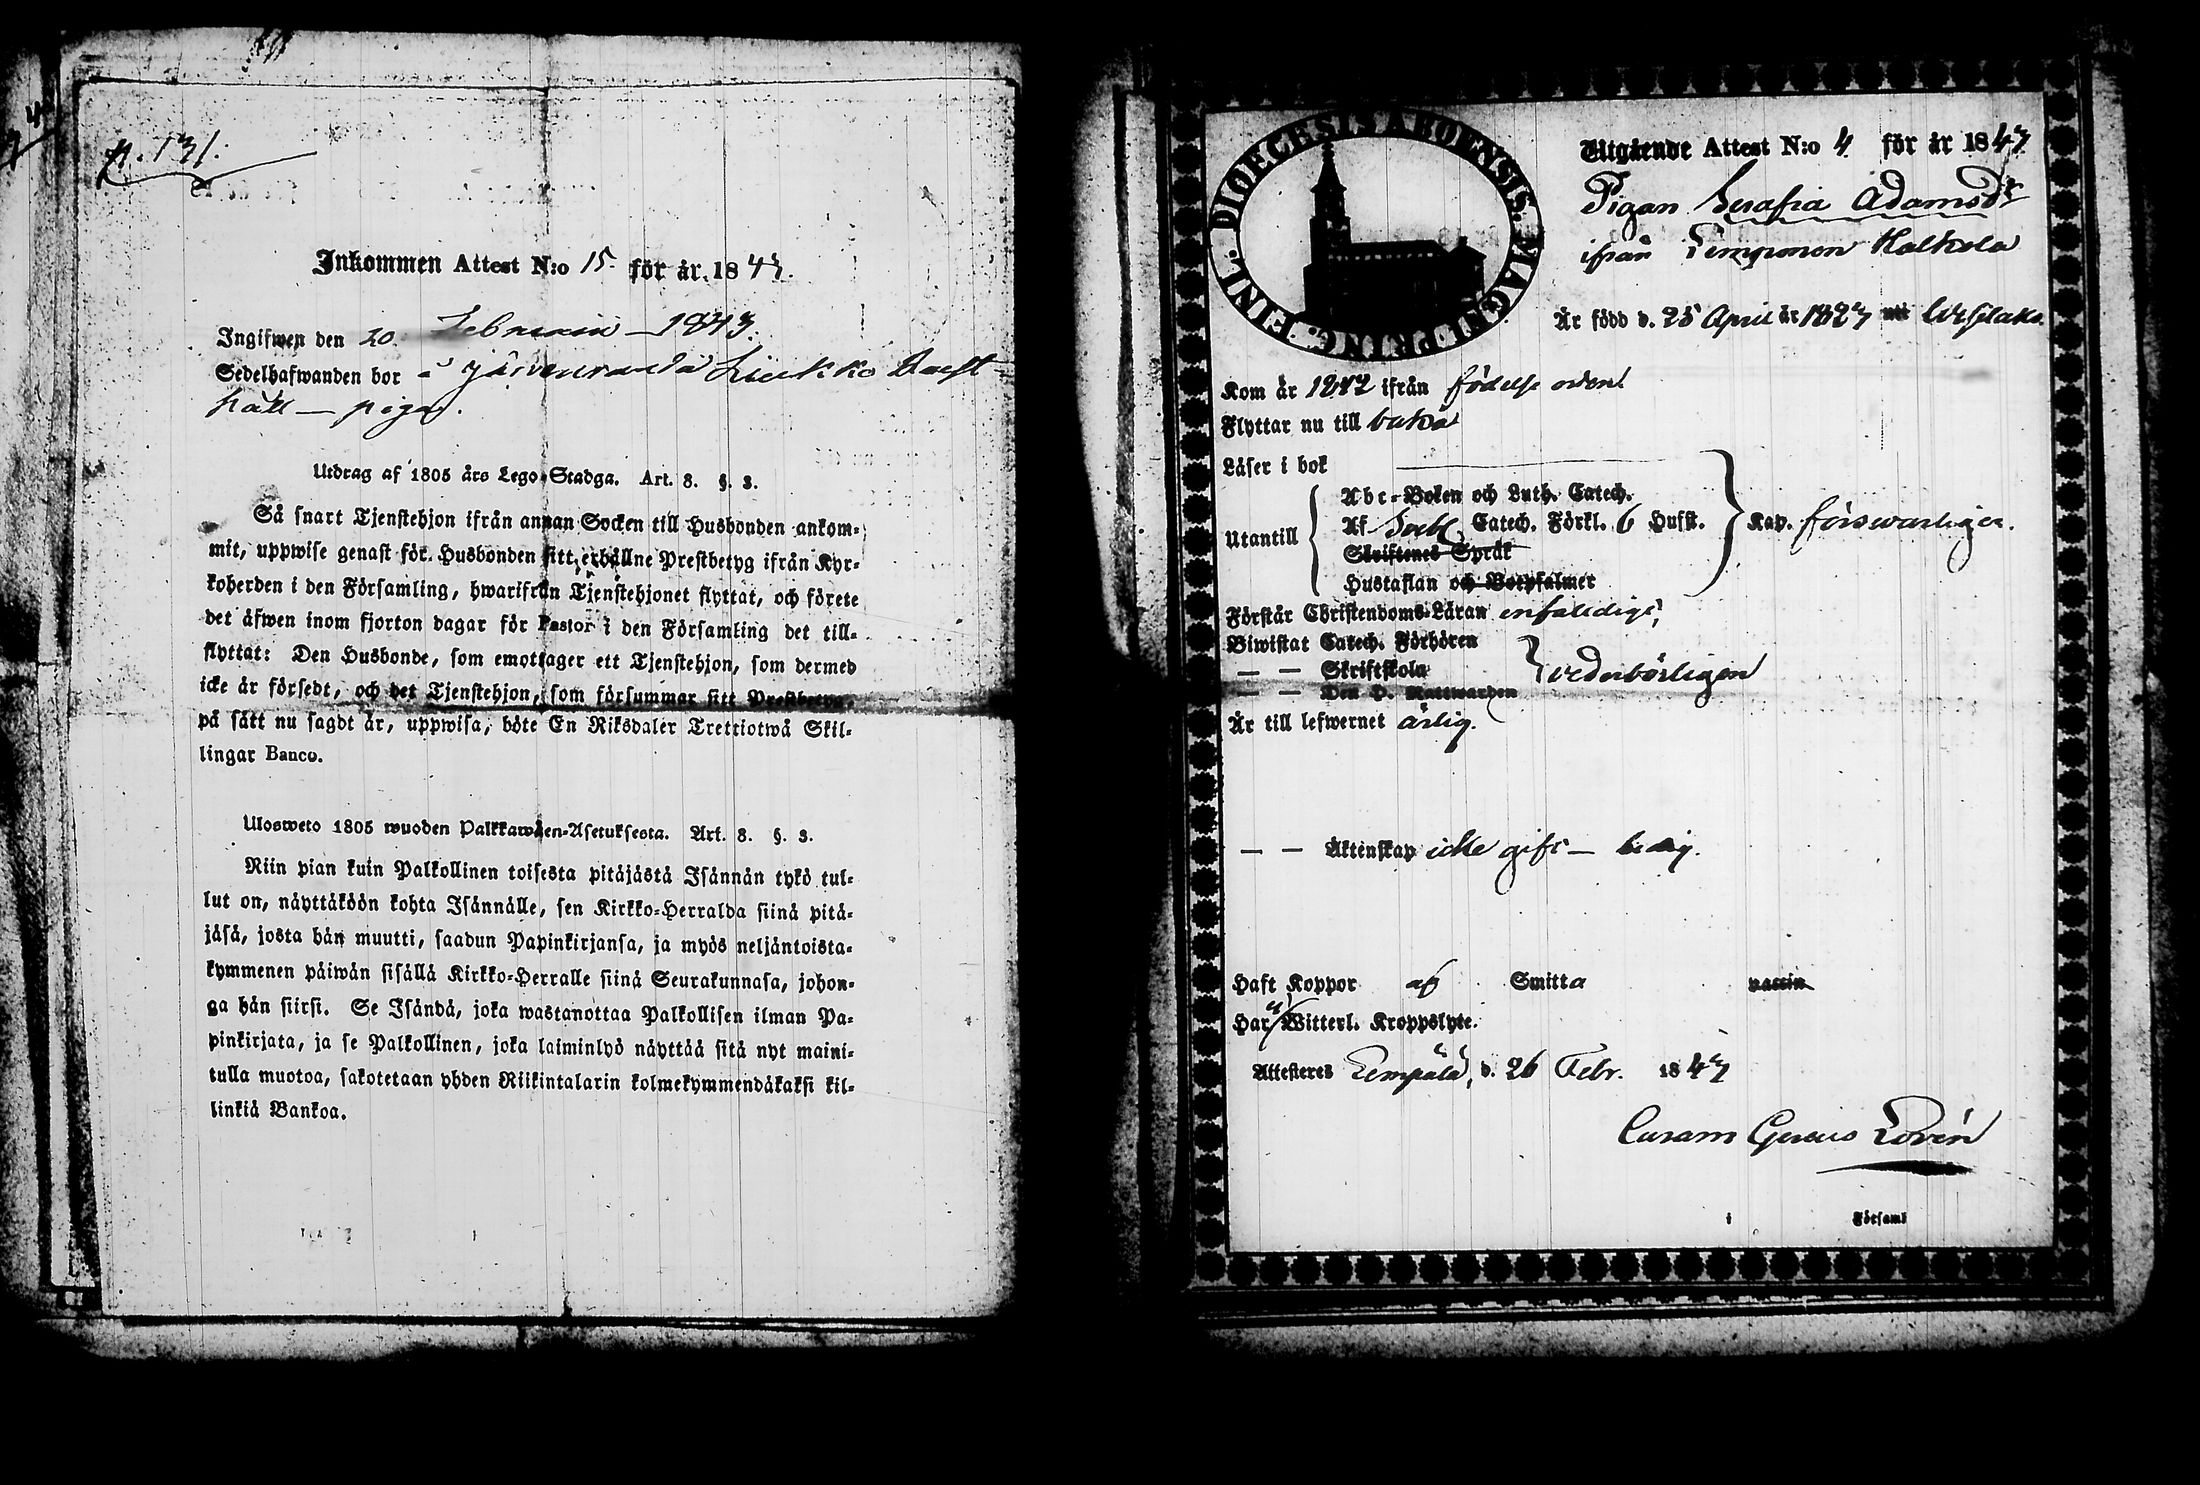 n. 131.
Inkommen Attest N:o 15. för år 1843.
Ingifwen den 20. Februari 1843.
Sedelhafwanden bor i
håll — piga.
Utdrag af 1805 års Lego-Stadga. Art. 8. §. 3.
Så snart Tjenstehjon ifrån annan Socken till Husbonden ankom-
mit, uppwise genast för Husbonden sitt erhållne Prestbetyg ifrån Kyr-
koherden i den Församling, hwarifrån Tjenstehjonet flyttat, och förete
det äfwen inom fjorton dagar för Pastor i den Församling det till-
flyttat: Den Husbonde, som emottager ett Tjenstehjon, som dermed
icke är försedt, och det Tjenstehjon, som försummar sitt Prestbetyg,
på sätt nu sagdt är, uppwisa, böte En Riksdaler Trettiotwå Skil-
lingar Banco.
Ulosweto 1805 wuoden Palkkawäen-Asetuksesta. Art. 8. §. 3.
Niin pian kuin Palkollinen toisesta pitäjästä Isännän tykö tul-
lut on, näyttäköön kohta Isännälle, sen Kirkko-Herralda siinä pitä-
jäsä, josta hän muutti, saadun Papinkirjansa, ja myös neljäntoista-
kymmenen päiwän sisällä Kirkko-Herralle siinä Seurakunnasa, johon-
ga hän siirsi. Se Isändä, joka wastanottaa Palkollisen ilman Pa-
pinkirjata, ja se Palkollinen, joka laiminlyö näyttää sitä nyt maini-
tulla muotoa, sakotetaan yhden Riikintalarin kolmekymmendäkaksi kil-
linkiä Bankoa.
DIOECESIS ABOENSIS. MAGNI PRINC. FINL.
Utgående Attest N:o 4 för år 1843
Pigan Serafia Adamsdr
ifrån Lemponen Halkola
Är född d. 25 April år 1823 uti Wesilaks.
Kom år 1842 ifrån födelse orten
Flyttar nu till baka
Läser i bok
Utantill
Abc-Boken och Luth. Catech.
Af Catech. Förkl. 6 Hufst.
Skriftenes Språk
Hustaflan och Botpsalmer
Kap. förswarligen.
Förstår Christendoms-Läran enfaldigt,
Biwistat Catech. Förhören
— — Skriftskola
— — Den H. Nattwarden
wederbörligen
Är till lefwernet ärlig.
— — Äktenskap icke gift — ledig.
Haft Koppor af Smitta vaccin
Har ej Witterl. Kroppslyte.
Attesteras Lempälä, d. 26 Febr. 1843
Curam Gerens Lovén
i Församl